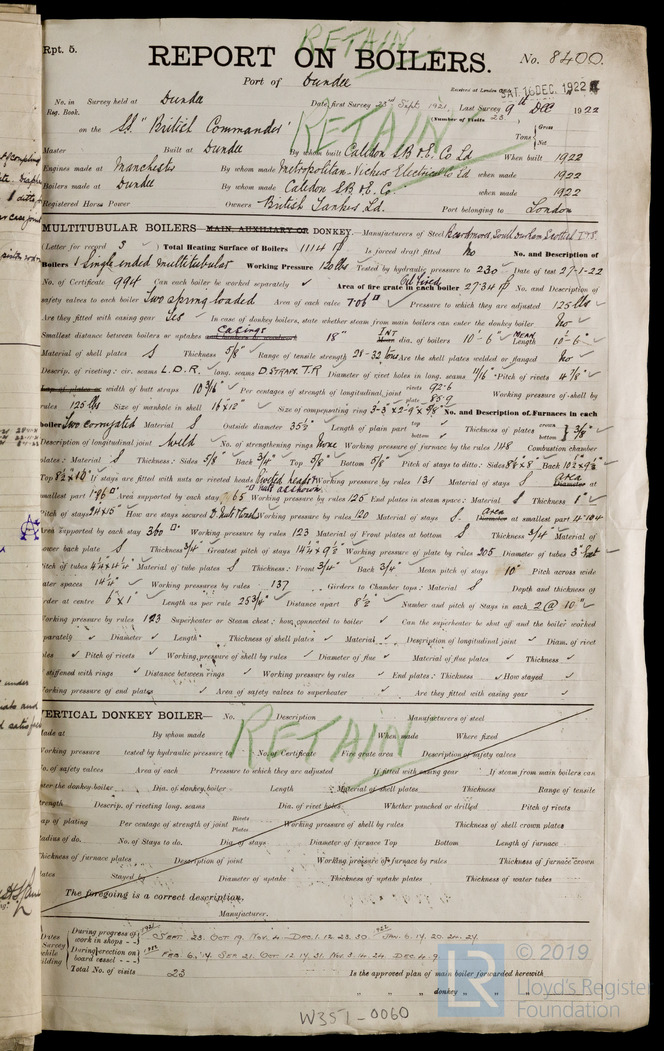 Rpt. 5.
RETAIN
REPORT ON BOILERS.
No. 8400.
Port of Dundee
Received at London Office SAT. 16 DEC. 1922
No. in Survey held at Dundee Date, first Survey 23rd Sept. 1921. Last Survey 9th Dec 1922
Reg. Book.
Number of Visits 23
on the SS. "British Commander" Tons Gross Net
RETAIN
Master Built at Dundee By whom built Caledon S.B. & E. Co Ld When built 1922
Engines made at Manchester By whom made Metropolitan-Vickers Electrical Co Ld when made 1922
Boilers made at Dundee By whom made Caledon S.B. & E. Co. when made 1922
Registered Horse Power Owners British Tanker Ld. Port belonging to London
MULTITUBULAR BOILERS MAIN, AUXILIARY OR DONKEY.—Manufacturers of Steel
(Letter for record 3 ✓) Total Heating Surface of Boilers 1114 Is forced draft fitted No No. and Description of
Boilers 1 Single ended multitubular Working Pressure 120 lbs Tested by hydraulic pressure to 230 Date of test 27-1-22
No. of Certificate 994 Can each boiler be worked separately ✓ Area of fire grate in each boiler No. and Description of
safety valves to each boiler Two spring loaded Area of each valve 7.06 Pressure to which they are adjusted 125 lbs
Are they fitted with easing gear Yes In case of donkey boilers, state whether steam from main boilers can enter the donkey boiler No
Smallest distance between boilers or uptakes Casings 18" INT dia. of boilers 10'-6" MEAN Length 10'-6"
Material of shell plates S Thickness 5/8" Range of tensile strength 28-32 tons Are the shell plates welded or flanged No
Descrip. of riveting: cir. seams L.D.R. long. seams D. STRAPS. T.R Diameter of rivet holes in long. seams 11/16" Pitch of rivets 4 7/8"
Lap of plates or width of butt straps 10 3/16" Per centages of strength of longitudinal joint rivets 92.6 plate 85.9 Working pressure of shell by
rules 125 lbs Size of manhole in shell 16"x12" Size of compensating ring No. and Description of Furnaces in each
boiler Two corrugated Material S Outside diameter 35 1/2" Length of plain part top bottom Thickness of plates crown bottom 3/8"
Description of longitudinal joint Weld No. of strengthening rings None Working pressure of furnace by the rules 148 Combustion chamber
plates: Material S Thickness: Sides 5/8" Back 3/4" Top 5/8" Bottom 5/8" Pitch of stays to ditto: Sides Back
Top If stays are fitted with nuts or riveted heads riveted heads & nuts as shown Working pressure by rules 131 Material of stays S Area
smallest part 1.96 Area supported by each stay 65 Working pressure by rules 125 End plates in steam space: Material S Thickness 1"
Pitch of stays 24x15" How are stays secured Working pressure by rules 120 Material of stays S. Area Diameter at smallest part
Area supported by each stay 360 Working pressure by rules 123 Material of Front plates at bottom S Thickness 3/4" Material of
Lower back plate S Thickness 3/4" Greatest pitch of stays Working pressure of plate by rules 205 Diameter of tubes 3"
Pitch of tubes Material of tube plates S Thickness: Front 3/4" Back 3/4" Mean pitch of stays 10" Pitch across wide
water spaces 14 1/4" Working pressures by rules 137 Girders to Chamber tops: Material S Depth and thickness of
girder at centre 6"x1" Length as per rule 25 3/4" Distance apart 8 1/2" Number and pitch of Stays in each 2 @ 10"
Working pressure by rules 123 Superheater or Steam chest; how connected to boiler ✓ Can the superheater be shut off and the boiler worked
separately ✓ Diameter ✓ Length Thickness of shell plates ✓ Material ✓ Description of longitudinal joint ✓ Diam. of rivet
holes ✓ Pitch of rivets ✓ Working pressure of shell by rules ✓ Diameter of flue ✓ Material of flue plates ✓ Thickness ✓
If stiffened with rings ✓ Distance between rings ✓ Working pressure by rules ✓ End plates: Thickness ✓ How stayed ✓
Working pressure of end plates ✓ Area of safety valves to superheater ✓ Are they fitted with easing gear ✓
VERTICAL DONKEY BOILER— No. Description Manufacturers of steel
RETAIN
Made at By whom made When made Where fixed
Working pressure tested by hydraulic pressure to No. of Certificate Fire grate area Description of safety valves
No. of safety valves Area of each Pressure to which they are adjusted If fitted with easing gear If steam from main boilers can
enter the donkey boiler Dia. of donkey boiler Length Material of shell plates Thickness Range of tensile
strength Descrip. of riveting long. seams Dia. of rivet holes Whether punched or drilled Pitch of rivets
Lap of plating Per centage of strength of joint Rivets Plates Working pressure of shell by rules Thickness of shell crown plates
Radius of do. No. of Stays to do. Dia. of stays Diameter of furnace Top Bottom Length of furnace
Thickness of furnace plates Description of joint Working pressure of furnace by rules Thickness of furnace crown
plates Stayed by Diameter of uptake Thickness of uptake plates Thickness of water tubes
The foregoing is a correct description,
Manufacturer.
Dates of Survey while building
During progress of work in shops - - 1921 SEPT. 23. OCT 19. NOV. 4. DEC. 1. 12. 23. 30. 1922 JAN. 6. 14. 20. 24. 27.
During erection on board vessel - - - 1922 FEB. 6. 14. SEP 21. OCT 12. 17. 31. NOV 3. 9. 24. DEC. 4. 9.
Total No. of visits 23 Is the approved plan of main boiler forwarded herewith
" " " donkey " " "
W351-0060
© 2019
LR
Lloyd's Register
Foundation